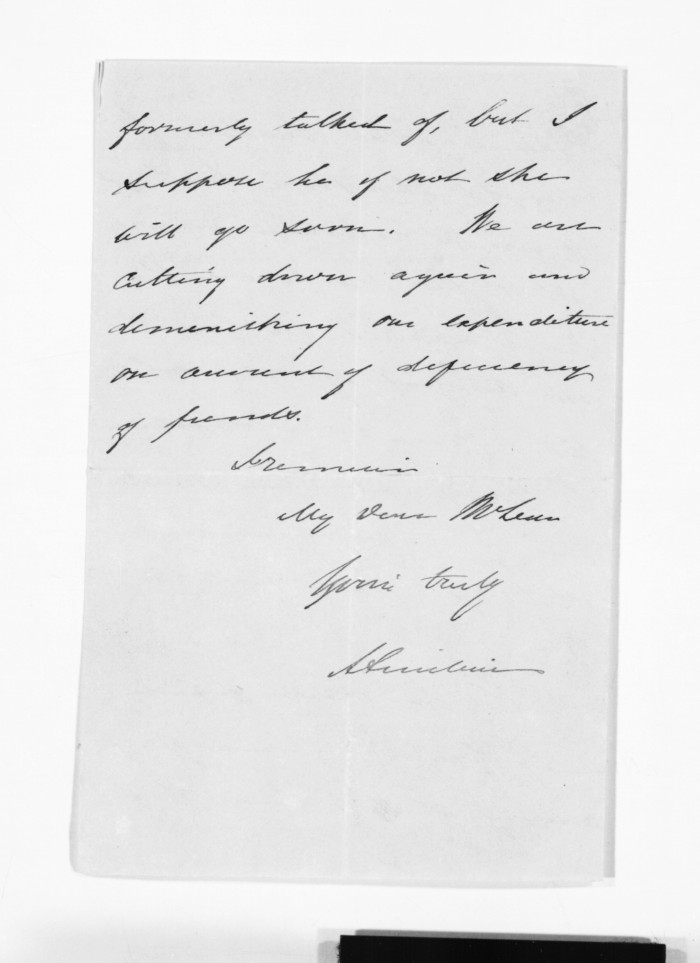 formerly talked of, but I
suppose he if not she
will go soon. We are
Cutting down again and
demenishing our expenditure
on account of deficiency
of funds.
I remain
My Dear McLean
Yours truly